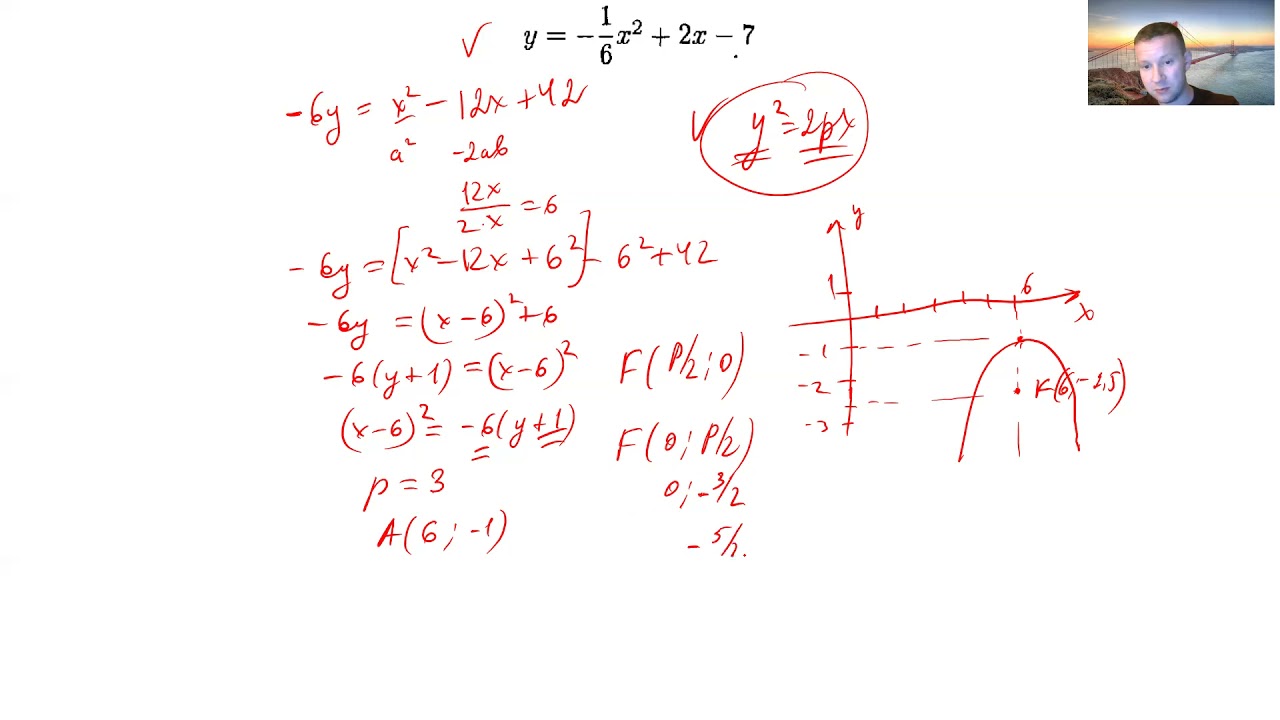 √ y = -1/6 x² + 2x - 7
-6y = x² - 12x + 42
a² -2ab
12x/2·x = 6
-6y = [x² - 12x + 6²] - 6² + 42
-6y = (x-6)² + 6
-6(y+1) = (x-6)²
(x-6)² = -6(y+1)
p = 3
A(6; -1)
√ y² = 2px
F(P/2; 0)
F(0; P/2)
0; -3/2
-5/2.
y
1
6
x
-1
-2
-3
F(6; -2,5)